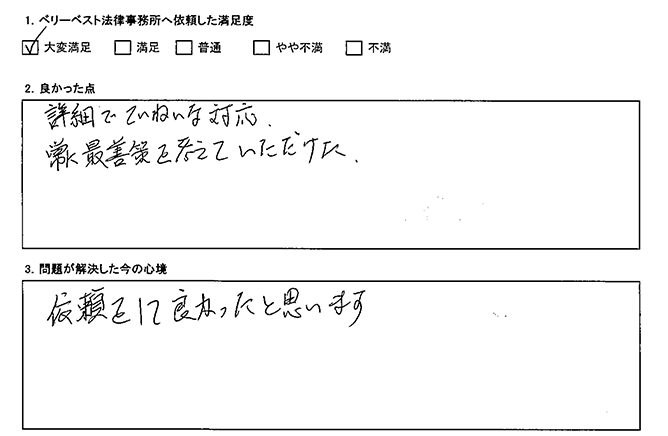 1. ベリーベスト法律事務所へ依頼した満足度
大変満足 満足 普通 やや不満 不満
2. 良かった点
詳細でていねいな対応.
常に最善策を考えていただけた.
3. 問題が解決した今の心境
依頼をして良かったと思います